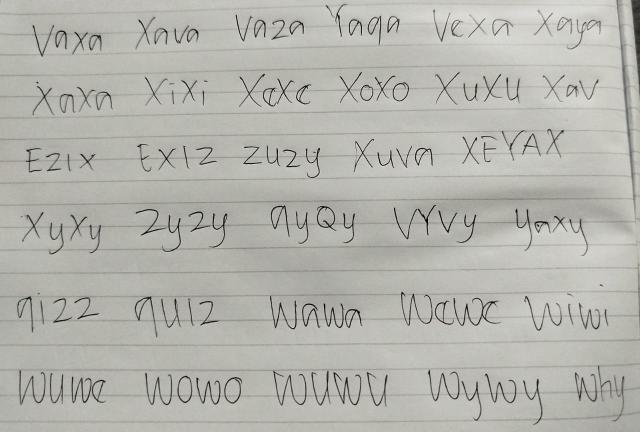 Vaxa Xava Vaza Yaqa Vexa Xaya
Xaxa XiXi XeXe XoXo XuXu Xav
Ezix EXIZ Zuzy Xuva XEYAX
XyXy Zyzy qyQy VYVy Yaxy
qizz quiz Wawa WeWe Wiwi
Wuwe Wowo WUWU WyWy Why